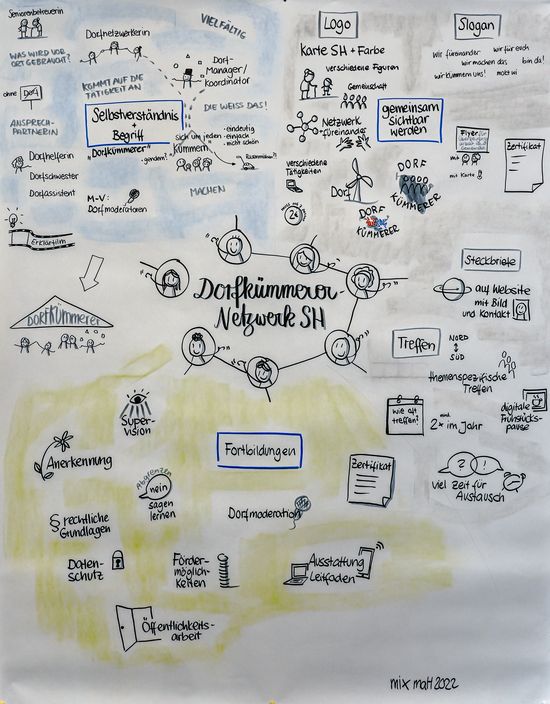 Seniorenbetreuerin
WAS WIRD VOR
ORT GEBRAUCHT?
ohne Dorf
ANSPRECH-
PARTNERIN
Dorfhelferin
Dorfschwester
Dorfassistent
Erklärfilm
Dorfnetzwerkerin
VIELFÄLTIG
Dorf-
Manager/
Koordinator
KOMMT AUF DIE
TÄTIGKEIT AN
Selbstverständnis
Begriff
DIE WEISS DAS!
"Dorfkümmerer"
gendern?
sich um jeden
kümmern
- eindeutig
- einfach
- nicht schön
M-V:
Dorfmoderatoren
MACHEN
DORFKÜMMERER
Logo
Karte SH + Farbe
verschiedene Figuren
Gemeinschaft
Netzwerk
füreinander
verschiedene
Tätigkeiten
24
Dorf
DORF
KÜMMERER
DORF
KÜMMERER
gemeinsam
Sichtbar
werden
Slogan
Wir füreinander
wir für euch
wir machen das
bin da!
wir kümmern uns!
Flyer
mit
mit Karte
Zertifikat
Steckbriefe
auf Website
mit Bild
und Kontakt
Dorfkümmerer-
Netzwerk SH
Treffen
NORD
SÜD
themenspezifische
Treffen
wie oft
treffen!
mind.
2x im Jahr
digitale
Frühstücks-
pause
viel Zeit für
Austausch
Fortbildungen
Super-
vision
Anerkennung
Abgrenzen
nein
sagen
lernen
§ rechtliche
Grundlagen
Dorfmoderation
Zertifikat
Daten-
schutz
Förder-
möglich-
keiten
Ausstattung
Leitfaden
Öffentlichkeits-
arbeit
mix matt 2022